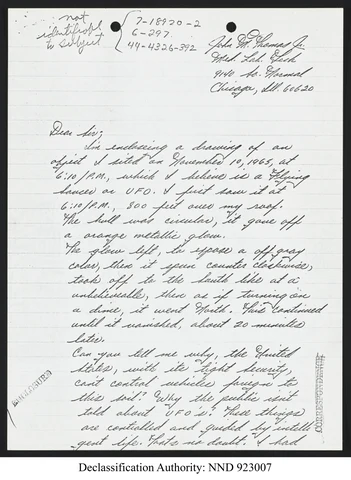 not
identifiable
to subject
7-18920-2
6-297
44-4326-342
John M. Thomas Jr.
Med. Lab. Tech
9140 So. Normal
Chicago, Ill 60620
Dear Sir;
I'm enclosing a drawing of an
object I sited on November 10, 1965, at
6:10/P.M., which I believe is a Flying
Saucer or UFO. I first saw it at
6:10/P.M., 800 feet over my roof.
The hull was circular, it gave off
a orange metallic glow.
The glow left, to expose a off gray
color, then it spun counter clockwise,
took off to the South like at a
unbelieveable, then as if turning on
a dime, it went North. This continued
until it vanished, about 20 minutes
later.
Can you tell me why, the United
States, with its tight security,
can't control vehicles foreign to
this soil? Why the public isn't
told about UFO's? These things
are controlled and guided by intelli
gent life. That's no doubt. I had
CORRESPONDENCE
Declassification Authority: NND 923007